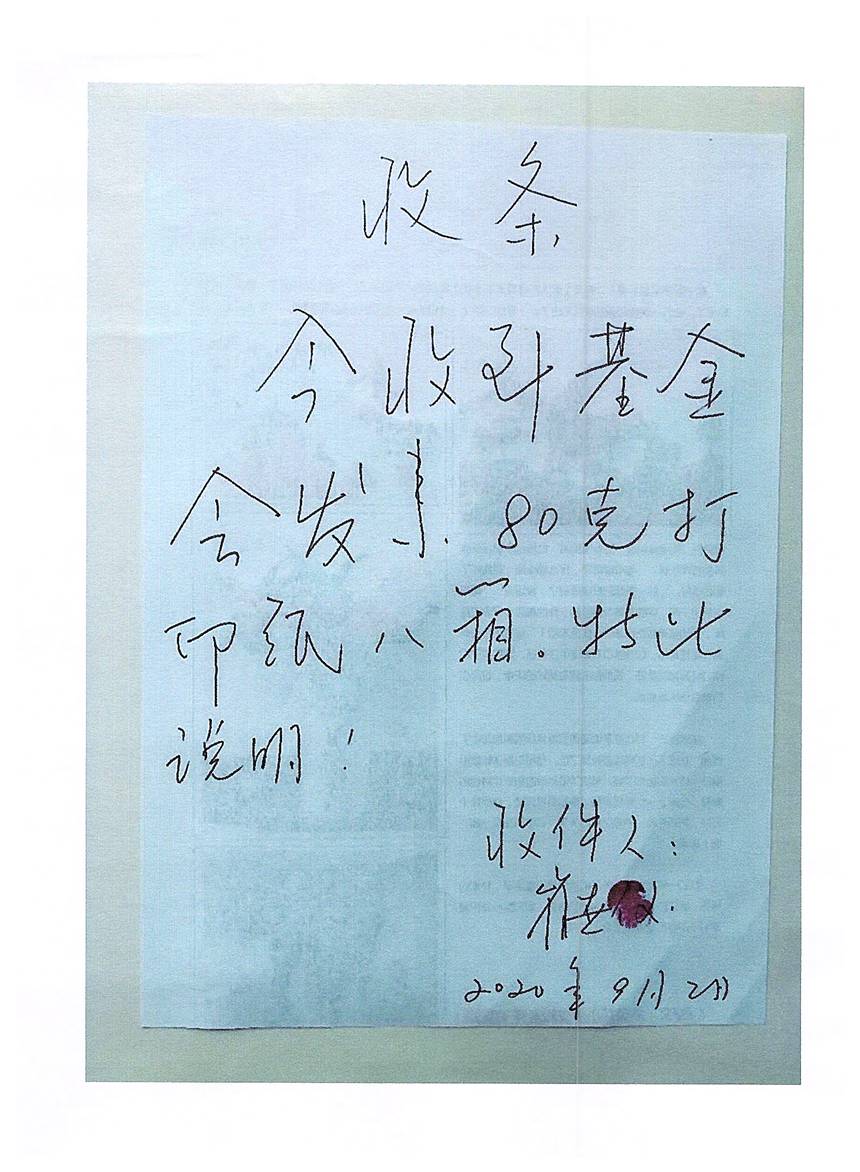 收条
今收到基金
会发来80克打
印纸八箱。特此
说明！
收件人：
崔世
2020年9月2日